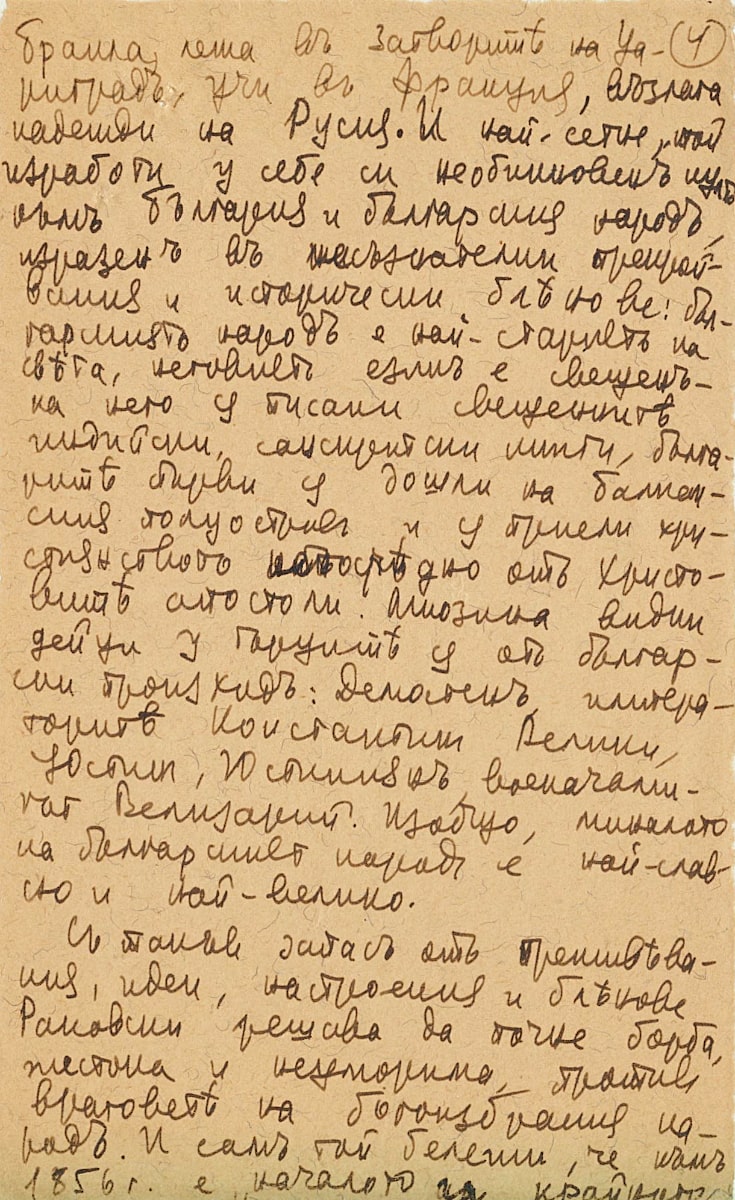 браила, лежа въ затворитѣ на Ца- (4)
риградъ, учи въ Франция, възлага
надежди на Русия. И най-сетне, той
изработи у себе си необикновенъ култъ
къмъ България и българския народъ,
изразенъ въ несъзнателни
и исторически блѣнове: бъл-
гарскиятъ народъ е най-стариятъ на
свѣта, неговиятъ езикъ е свещенъ-
на него сѫ писани свещенитѣ
индийски, санскритски книги, бълга-
ритѣ първи сѫ дошли на балкан-
ския полуостровъ и сѫ приели хри-
стиянството непосрѣдно отъ Христо-
витѣ апостоли. Мнозина видни
дейци у гърцитѣ сѫ отъ българ-
ски произходъ: Демостенъ, импера-
торитѣ Константин Велики,
Юстин, Юстиниянъ, военачални-
кът Велизарий. Изобщо, миналото
на българският народъ е най-слав-
но и най-велико.
Съ такъв запасъ отъ преживѣва-
ния, идеи, настроения и блѣнове
Раковски решава да почне борба,
жестока и неуморима, против
враговетѣ на богоизбрания на-
родъ. И самъ той бележи, че къмъ
1856 г. е началото на